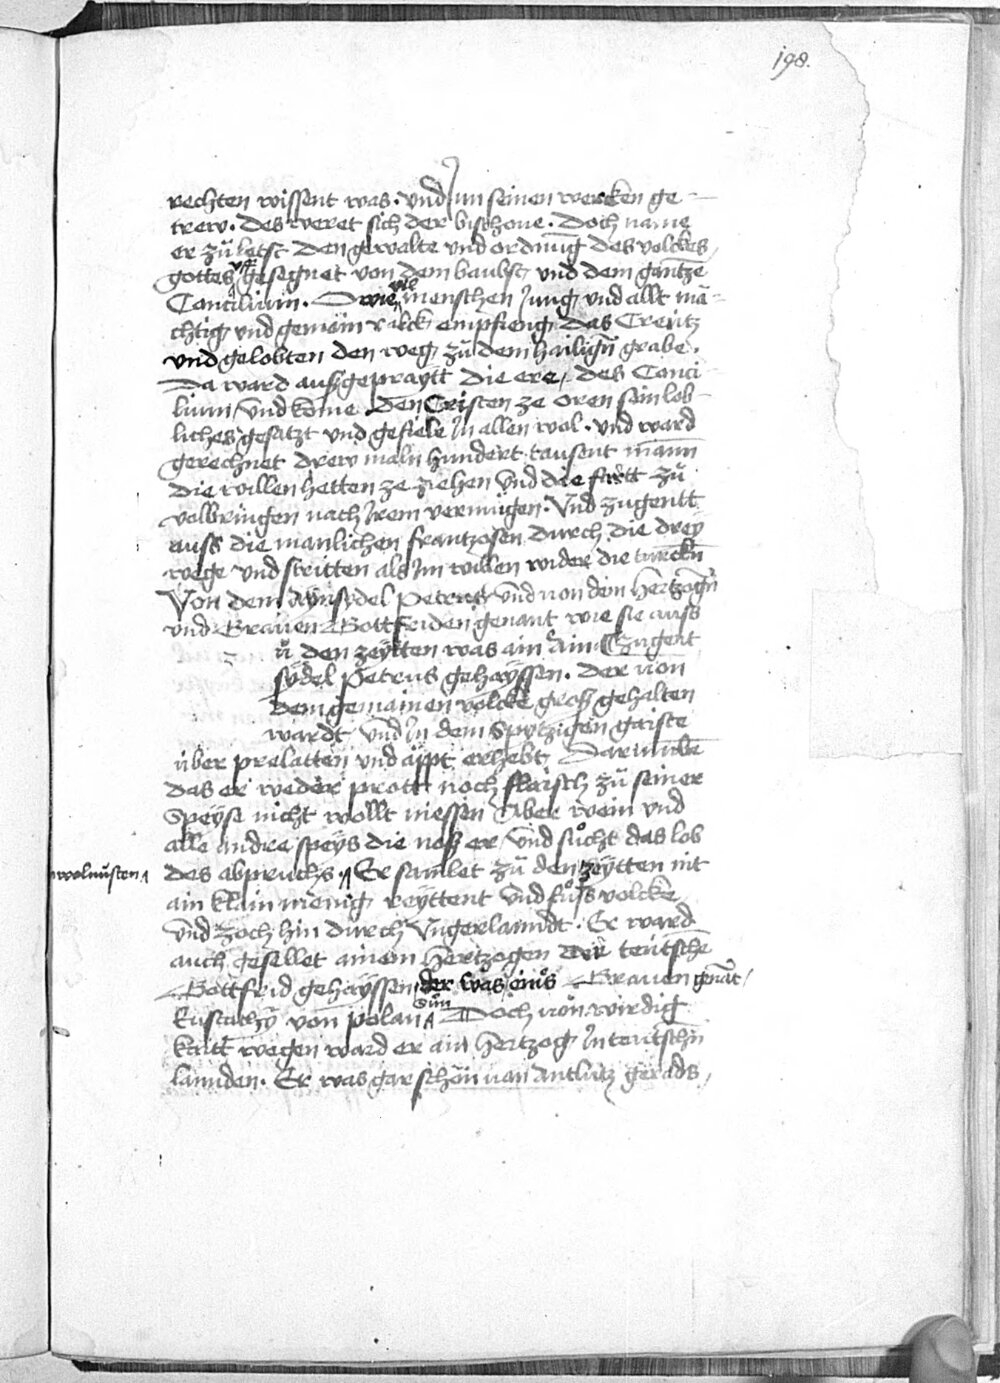 198.
rechten wissent was. vnd Inn seinen wercken ge-
trew. des weret sich der bischoue. Doch name
er zů letst den gewalte vnd ordnūg des volckes
gottes gesegnet von dem baubst vnd dem gantzē
Concilium. Wie vil menschen Jung vnd allt mā-
chtig vnd gemein volck empfieng das Creutz
vnd gelobten den weg zů dem hailigñ grabe.
Da ward aussgeprayt die ere des Conci-
lium vnd kome den Cristen ze oren sein lob-
liches gesatzt vnd gefiele In allen wol. vnd ward
gerechnet drew maln hundert tausent mann
die willen hetten ze ziehen vnd die fartt zů
volbringen nach Irem vermügen. Vnd zugentt
auss die manlichen frantzosen durch die drey
wege vnd stritten als Im willen wider die türckñ
Von dem Aynsydel Petrus vnd von dem Hertzogñ
vnd Grauen Gottfriden genant wie sie auss
zugent
Zů den zeytten was ain Ain-
sydel Petrus gehayssen. Der von
dem gemainen volcke gross gehalten
wardt vnd In dem Spytzigen gaiste
über prelatten vnd äppt erhebt Darumbē
das er weder prott noch flaisch zů seiner
Speyse nicht wollt niessen Aber wein vnd
alle andre speys die noss er vnd sůcht das lob
wolnusten
des abpruchs Er samlet zů den zeytten nit
ain klain menig reyttent vnd fůss volcke
vnd zoch hin durch Vngerlanndt. Er ward
auch gesellet ainem Hertzogen Der teutschē
Gottfrid gehayssen der was eins Grauen genāt
Eustachÿ von polan sůn Doch von wirdig
kait wegen ward er ain Hertzog In teutschñ
lannden. Er was gar schön von antlütz gerads